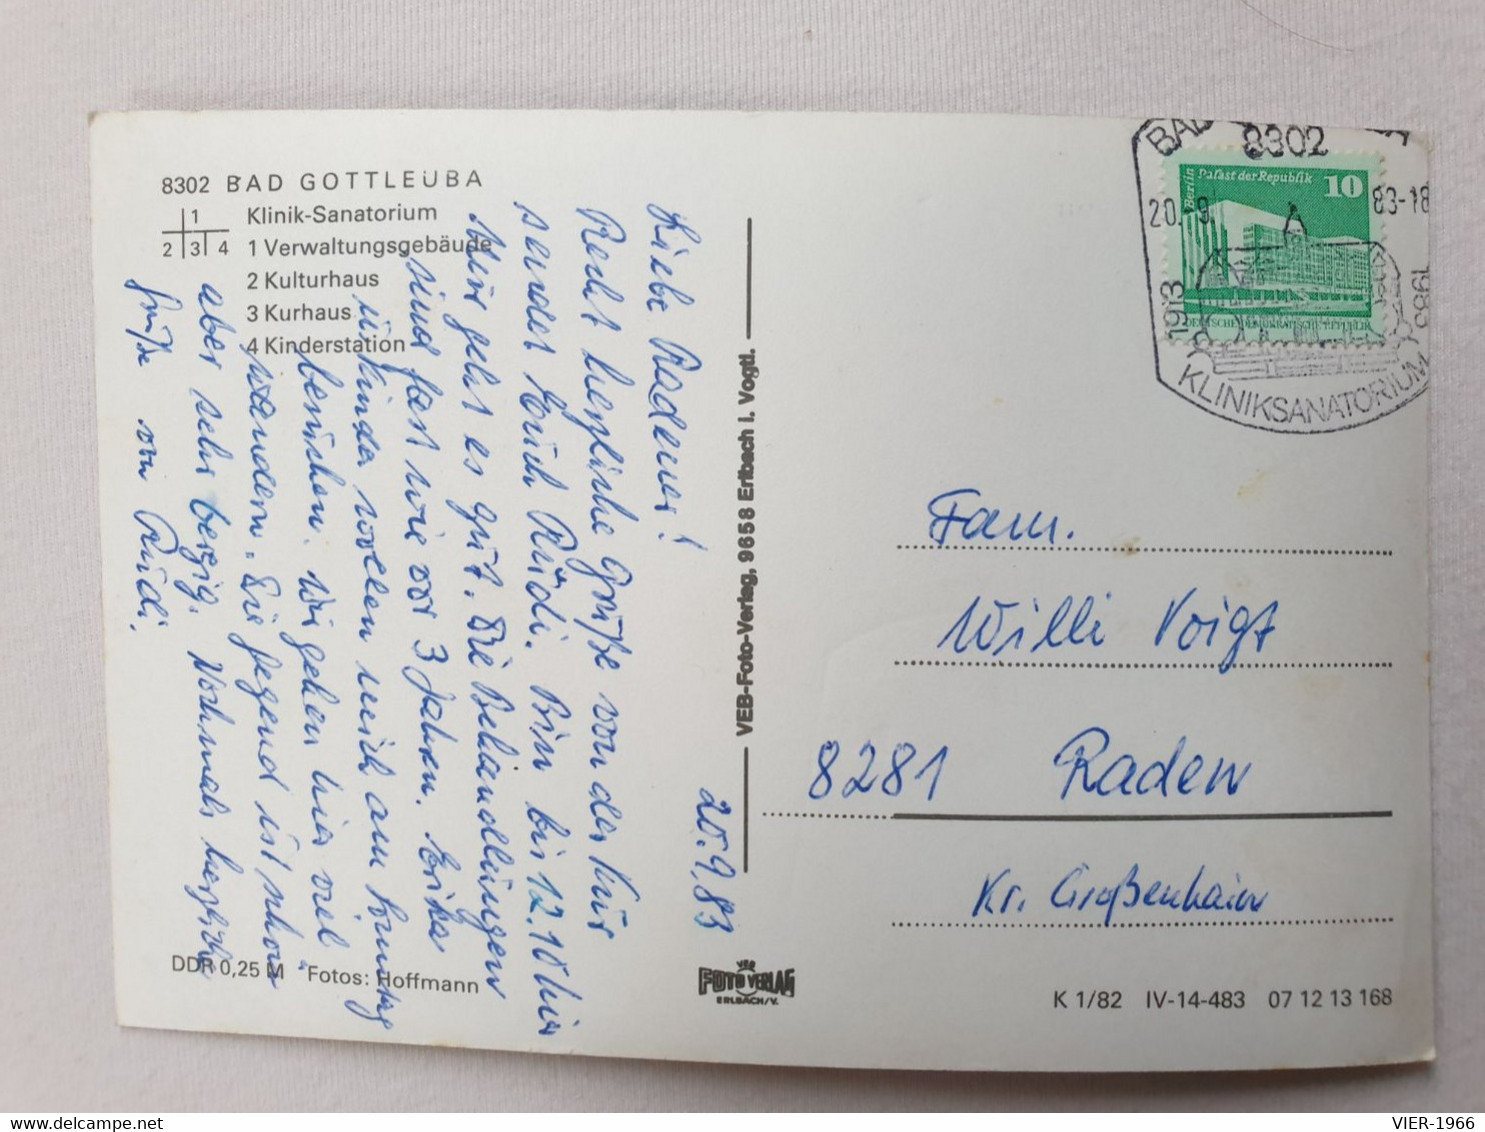 8302 BAD GOTTLEUBA
Klinik-Sanatorium
1 Verwaltungsgebäude
2 Kulturhaus
3 Kurhaus
4 Kinderstation
1
2 3 4
20.9.83
Liebe Radener!
Recht herzliche Grüße von der Kur
sendet Euch Rudi. Bin bis 12.10 hier
Mir geht es gut. Die Behandlungen
sind fast wie vor 3 Jahren. Erika
u. Kinder wollen mich am Sonntag
besuchen. Wir gehen hier viel
wandern. Die Gegend ist schön
aber sehr bergig. Nochmals herzliche
Grüße von Rudi.
DDR 0,25 M Fotos: Hoffmann
VEB-Foto-Verlag, 9658 Erlbach i. Vogtl.
VEB
FOTO VERLAG
ERLBACH/V.
Berlin
Palast der Republik 10
DEUTSCHE DEMOKRATISCHE REPUBLIK
BAD
8302
20.-9. 83-18
1913 1983
KLINIKSANATORIUM
A
Fam.
Willi Voigt
8281 Raden
Kr. Großenhain
K 1/82 IV-14-483 07 12 13 168
VIER-1966